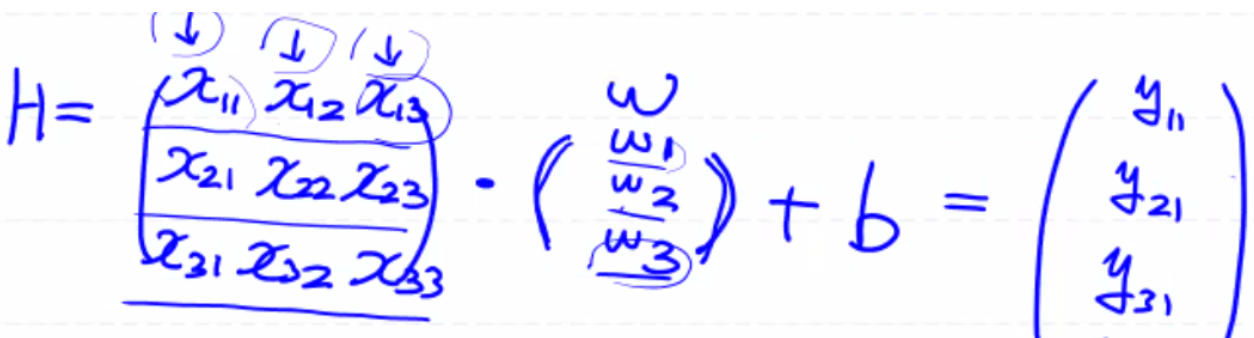 ↓ ↓ ↓
W
H = ( x₁₁ x₁₂ x₁₃ x₂₁ x₂₂ x₂₃ x₃₁ x₃₂ x₃₃ ) · ( w₁ w₂ w₃ ) + b = ( y₁₁ y₂₁ y₃₁ )